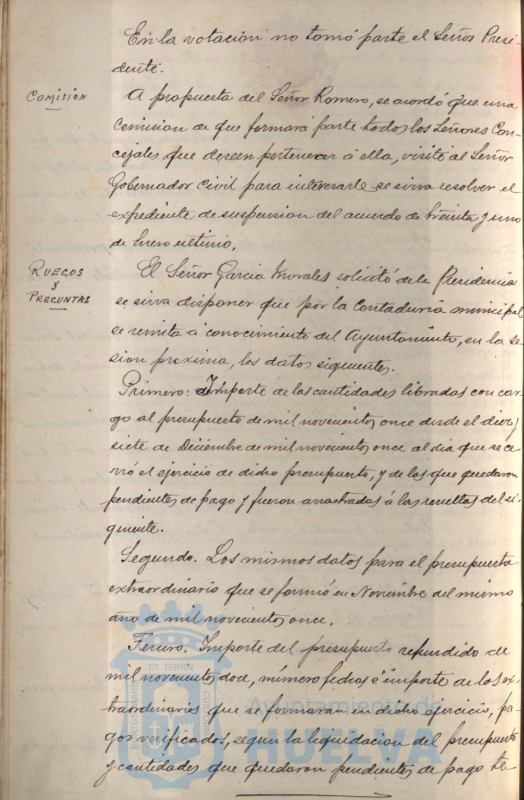 En la votación no tomó parte el Señor Presi-
dente.
COMISIÓN
A propuesta del Señor Romero, se acordó que una
Comisión de que formará parte todos los Señores Con-
cejales que deseen pertenecer á ella, visité al Señor
Gobernador Civil para interesarle se sirva resolver el
expediente de suspension del acuerdo de treinta y uno
de Enero último.
RUEGOS
y
PREGUNTAS
El Señor Garcia Morales solicitó de la Presidencia
se sirva disponer que por la Contaduria municipal
se remita á conocimiento del Ayuntamiento, en la se-
sion proxima, los datos siguientes.
Primero: Importe de las cantidades libradas con car-
go al presupuesto de mil novecientos once desde el diez y
siete de Diciembre de mil novecientos once al dia que se ce-
rró el ejercicio de dicho presupuesto, y de las que quedaron
pendientes de pago y fueron arrastradas á las resultas del si-
guiente.
Segundo. Los mismos datos para el presupuesto
extraordinario que se formó en Noviembre del mismo
año de mil novecientos once.
Tercero. Importe del presupuesto refundido de
mil novecientos doce, número fechas é importe de los ex-
traordinarios que se formaran en dicho ejercicio, pa-
gos verificados, segun la liquidacion del presupuesto
y cantidades que quedaron pendientes de pago
Ayuntamiento de
HUELVA